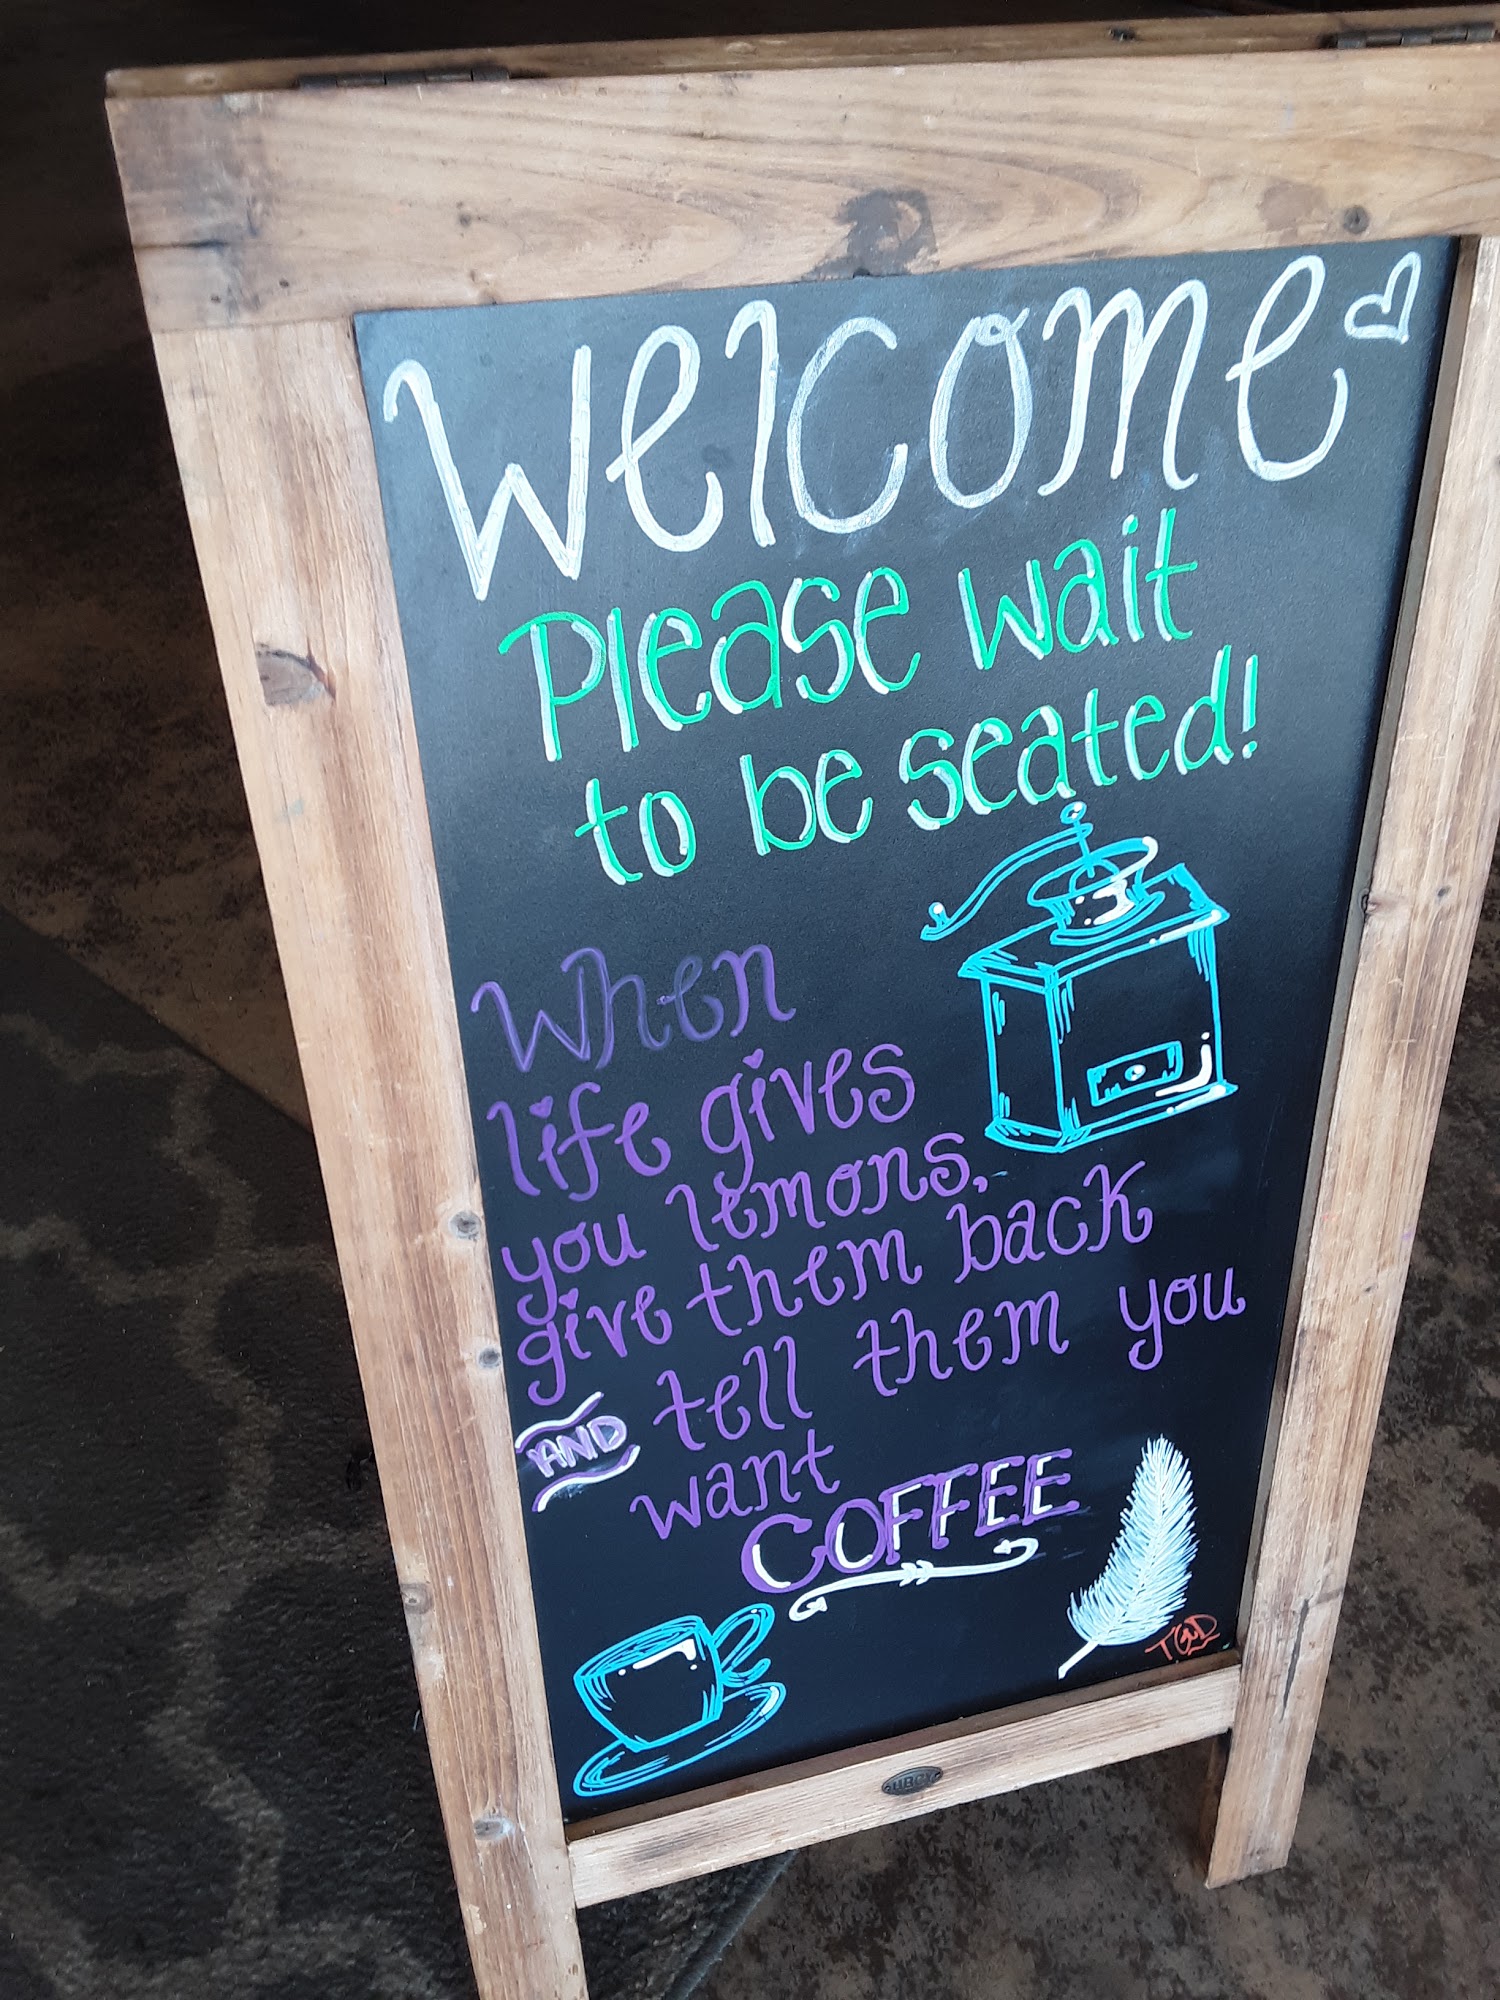 Welcome
Please wait
to be seated!
When
life gives
you lemons,
give them back
AND tell them you
want
COFFEE
TGD